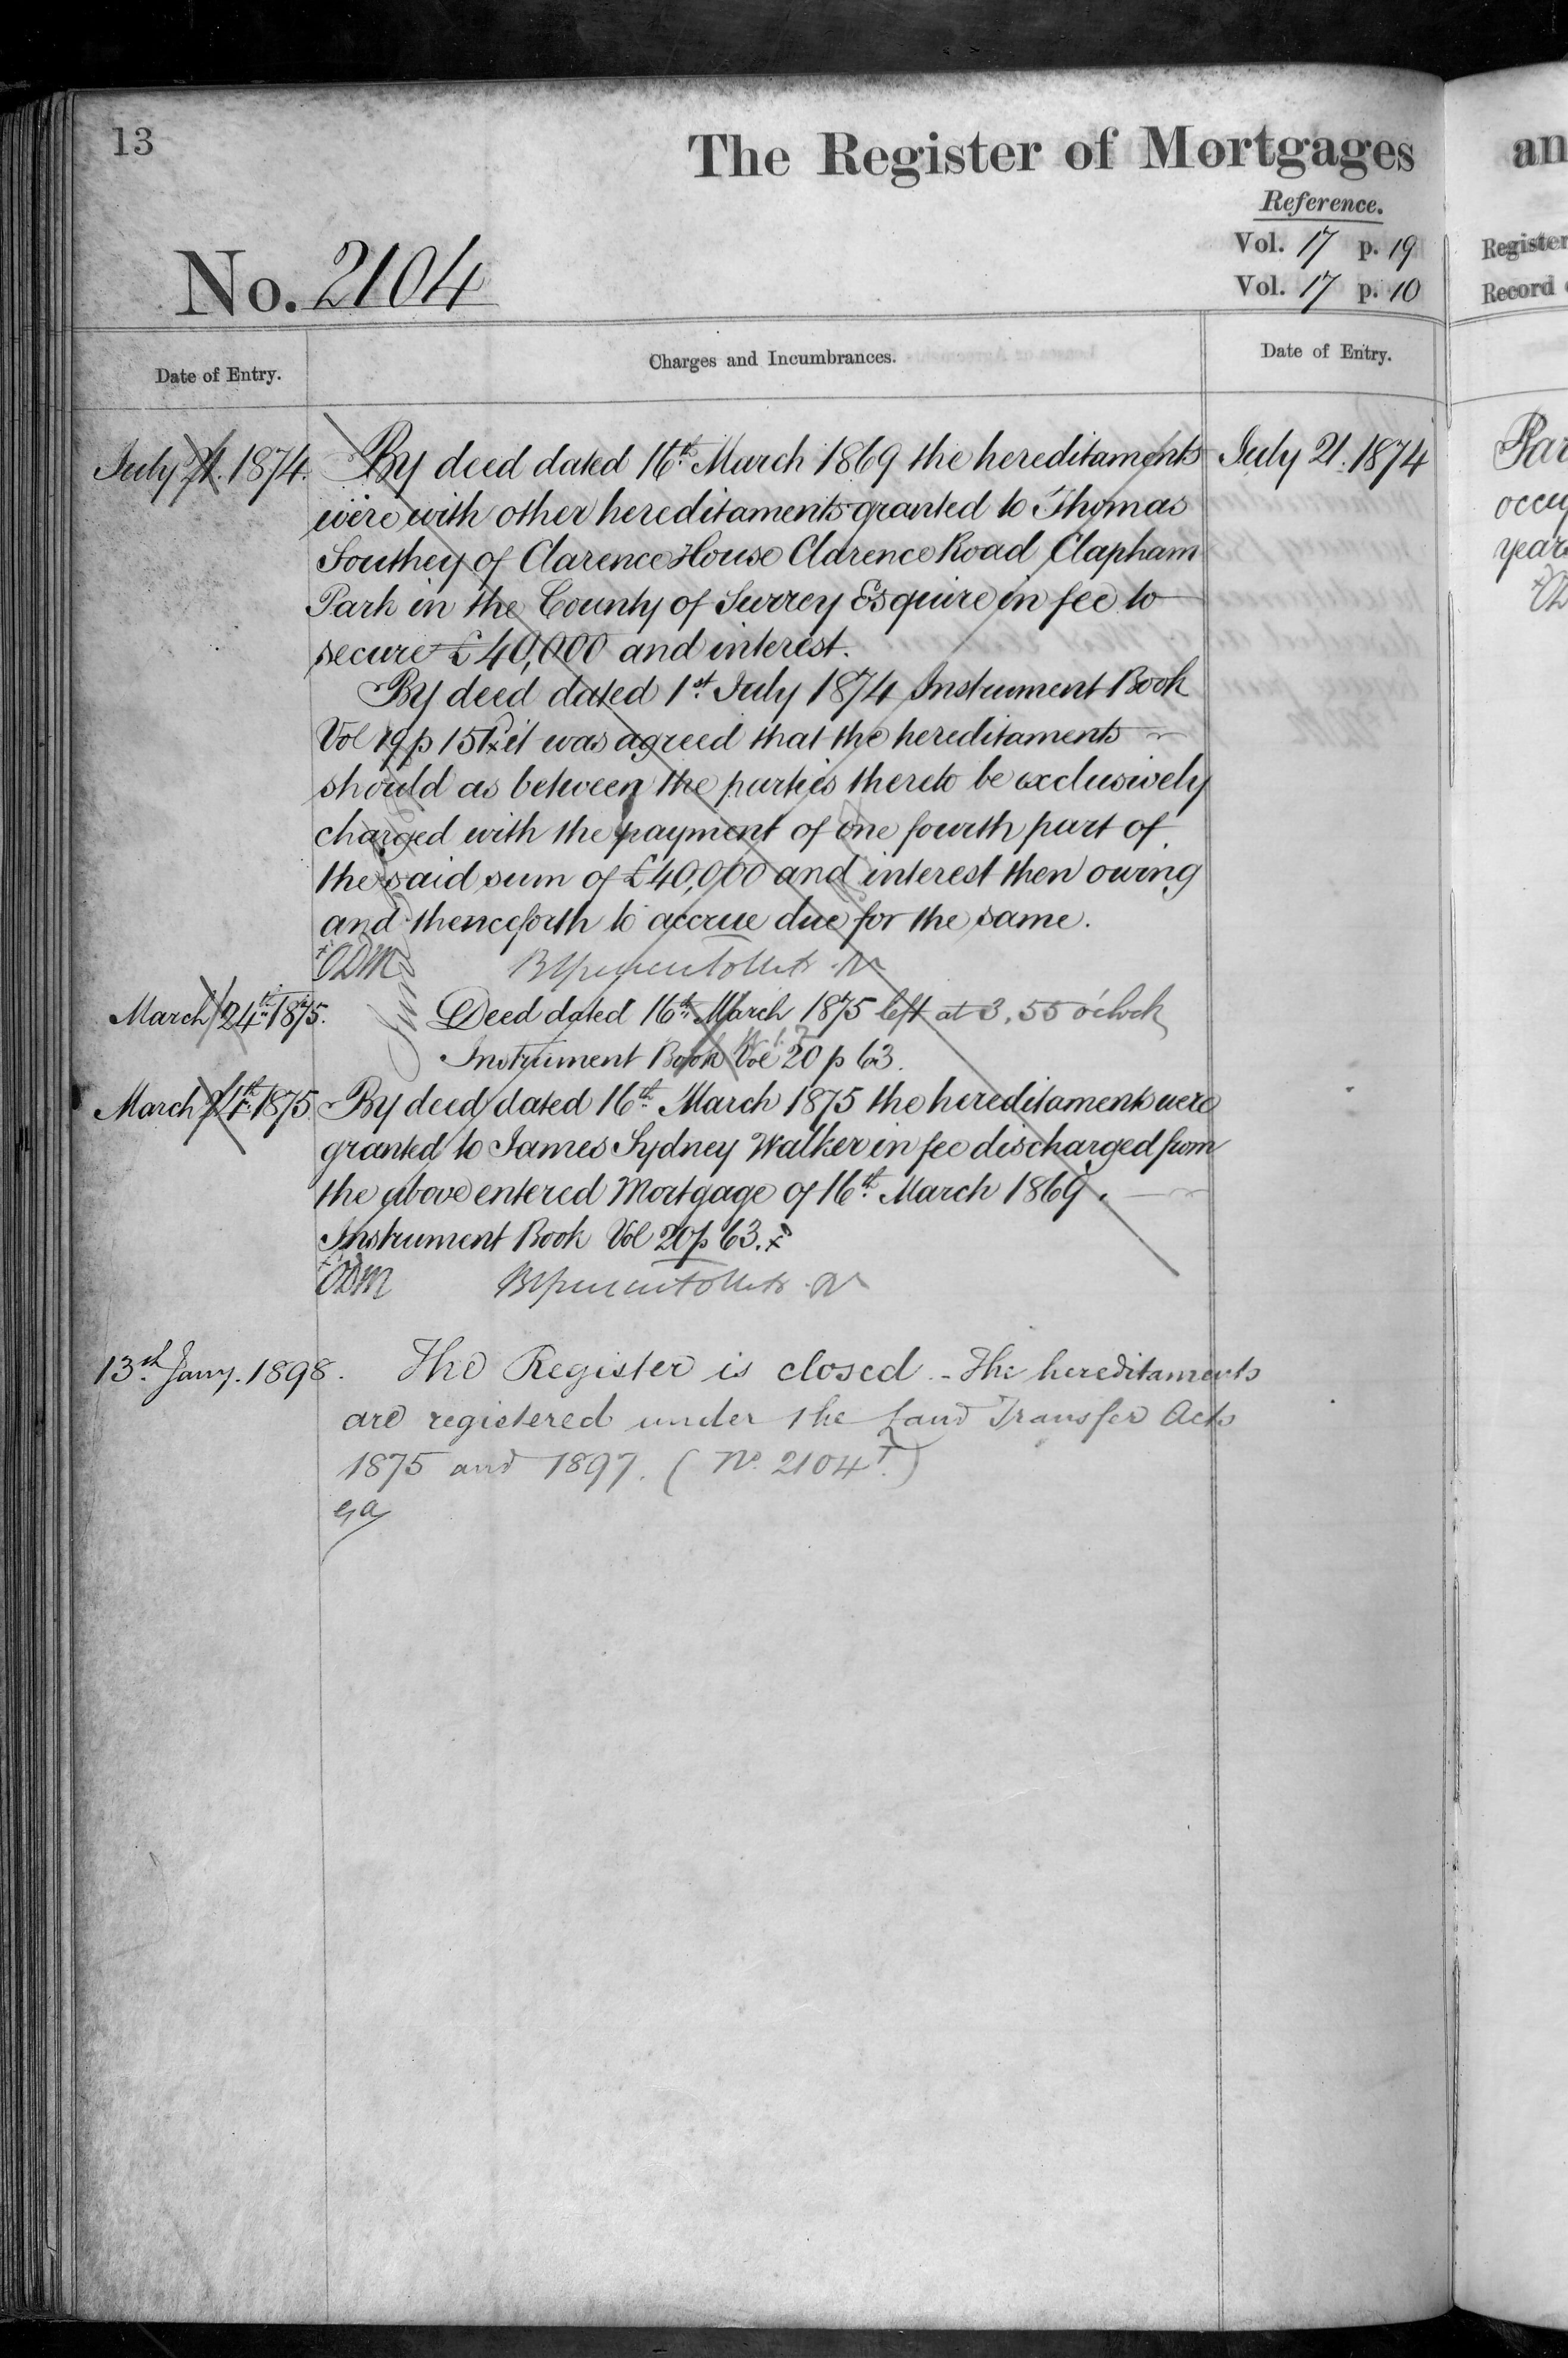 13
The Register of Mortgages
Reference.
Vol. 17 p. 19
Vol. 17 p. 10
No. 2104
Date of Entry.
Charges and Incumbrances.
Date of Entry.
July 21. 1874.
By deed dated 16th March 1869 the hereditaments
were with other hereditaments granted to Thomas
Southey of Clarence House Clarence Road Clapham
Park in the County of Surrey Esquire in fee to
secure £40,000 and interest.
By deed dated 1st July 1874 Instrument Book
Vol 19 p it was agreed that the hereditaments
should as between the parties thereto be exclusively
charged with the payment of one fourth part of
the said sum of £40,000 and interest then owing
and thenceforth to accrue due for the same.
ODM
March 24th 1875.
Deed dated 16th March 1875 left at 3.55 o'clock
Instrument Book Vol 20 p 63.
March 24th 1875
By deed dated 16th March 1875 the hereditaments were
granted to James Sydney Walker in fee discharged from
the above entered Mortgage of 16th March 1869.
Instrument Book Vol 20 p 63.
ODM
13th Jany. 1898.
The Register is closed - The hereditaments
are registered under the Land Transfer Acts
1875 and 1897. (No. 2104T.)
July 21. 1874
an
Register
Record
Par
occu
year